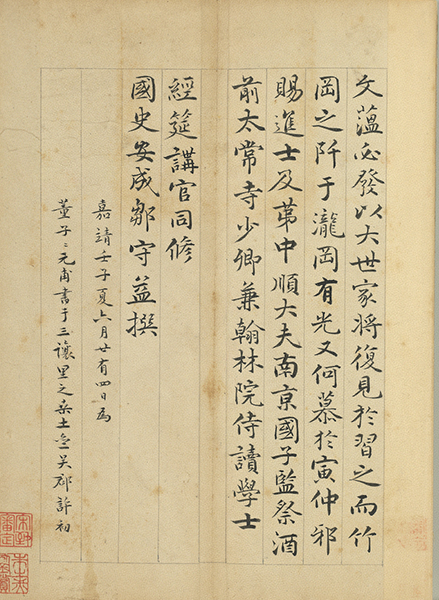 文蘊必發以大世家將復見於習之而竹
岡之阡于瀧岡有光又何慕於寅仲邪
賜進士及第中順大夫南京國子監祭酒
前太常寺少卿兼翰林院侍讀學士
經筵講官同修
國史安成鄒守益撰
嘉靖壬子夏六月廿有四日為
董子子元甫書于三讓里之樂土吳郡許初